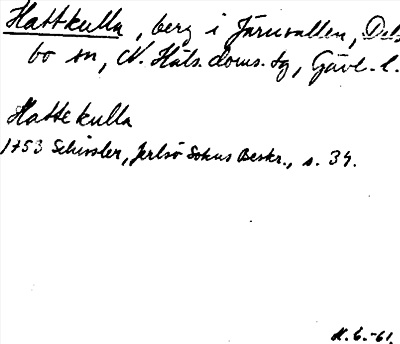 Hattkulla, berg i Järnvallen, Dels
bo sn, N. Häls. doms. tg, Gävl. l.
Hattekulla
1753 Schissler, Jerlsö Sokns Beskr., s. 34.
H. G. -61.